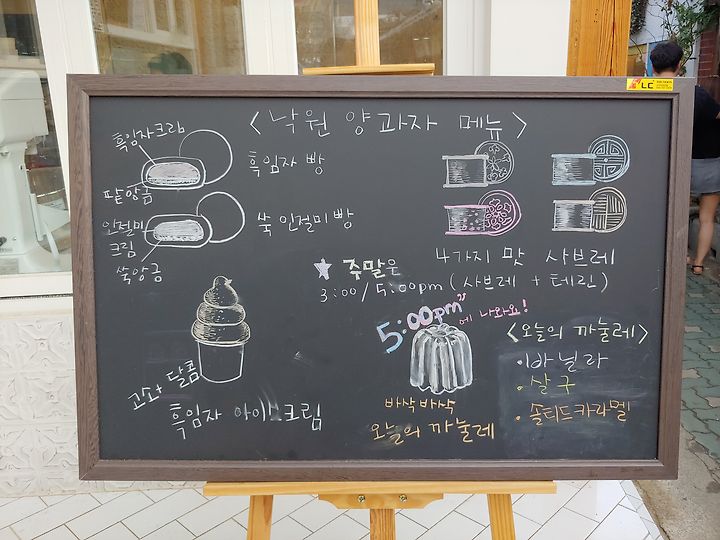 <낙원 양과자 메뉴>
흑임자크림
팥앙금
흑임자 빵
인절미
크림
쑥앙금
쑥 인절미빵
4가지 맛 샤브레
★ 주말은
3:00/5:00pm (샤브레 + 테린)
고소+달콤
흑임자 아이스크림
5:00pm
에 나와요!
바삭바삭
오늘의 까눌레
<오늘의 까눌레>
·바닐라
·살구
·솔티드카라멜
LC